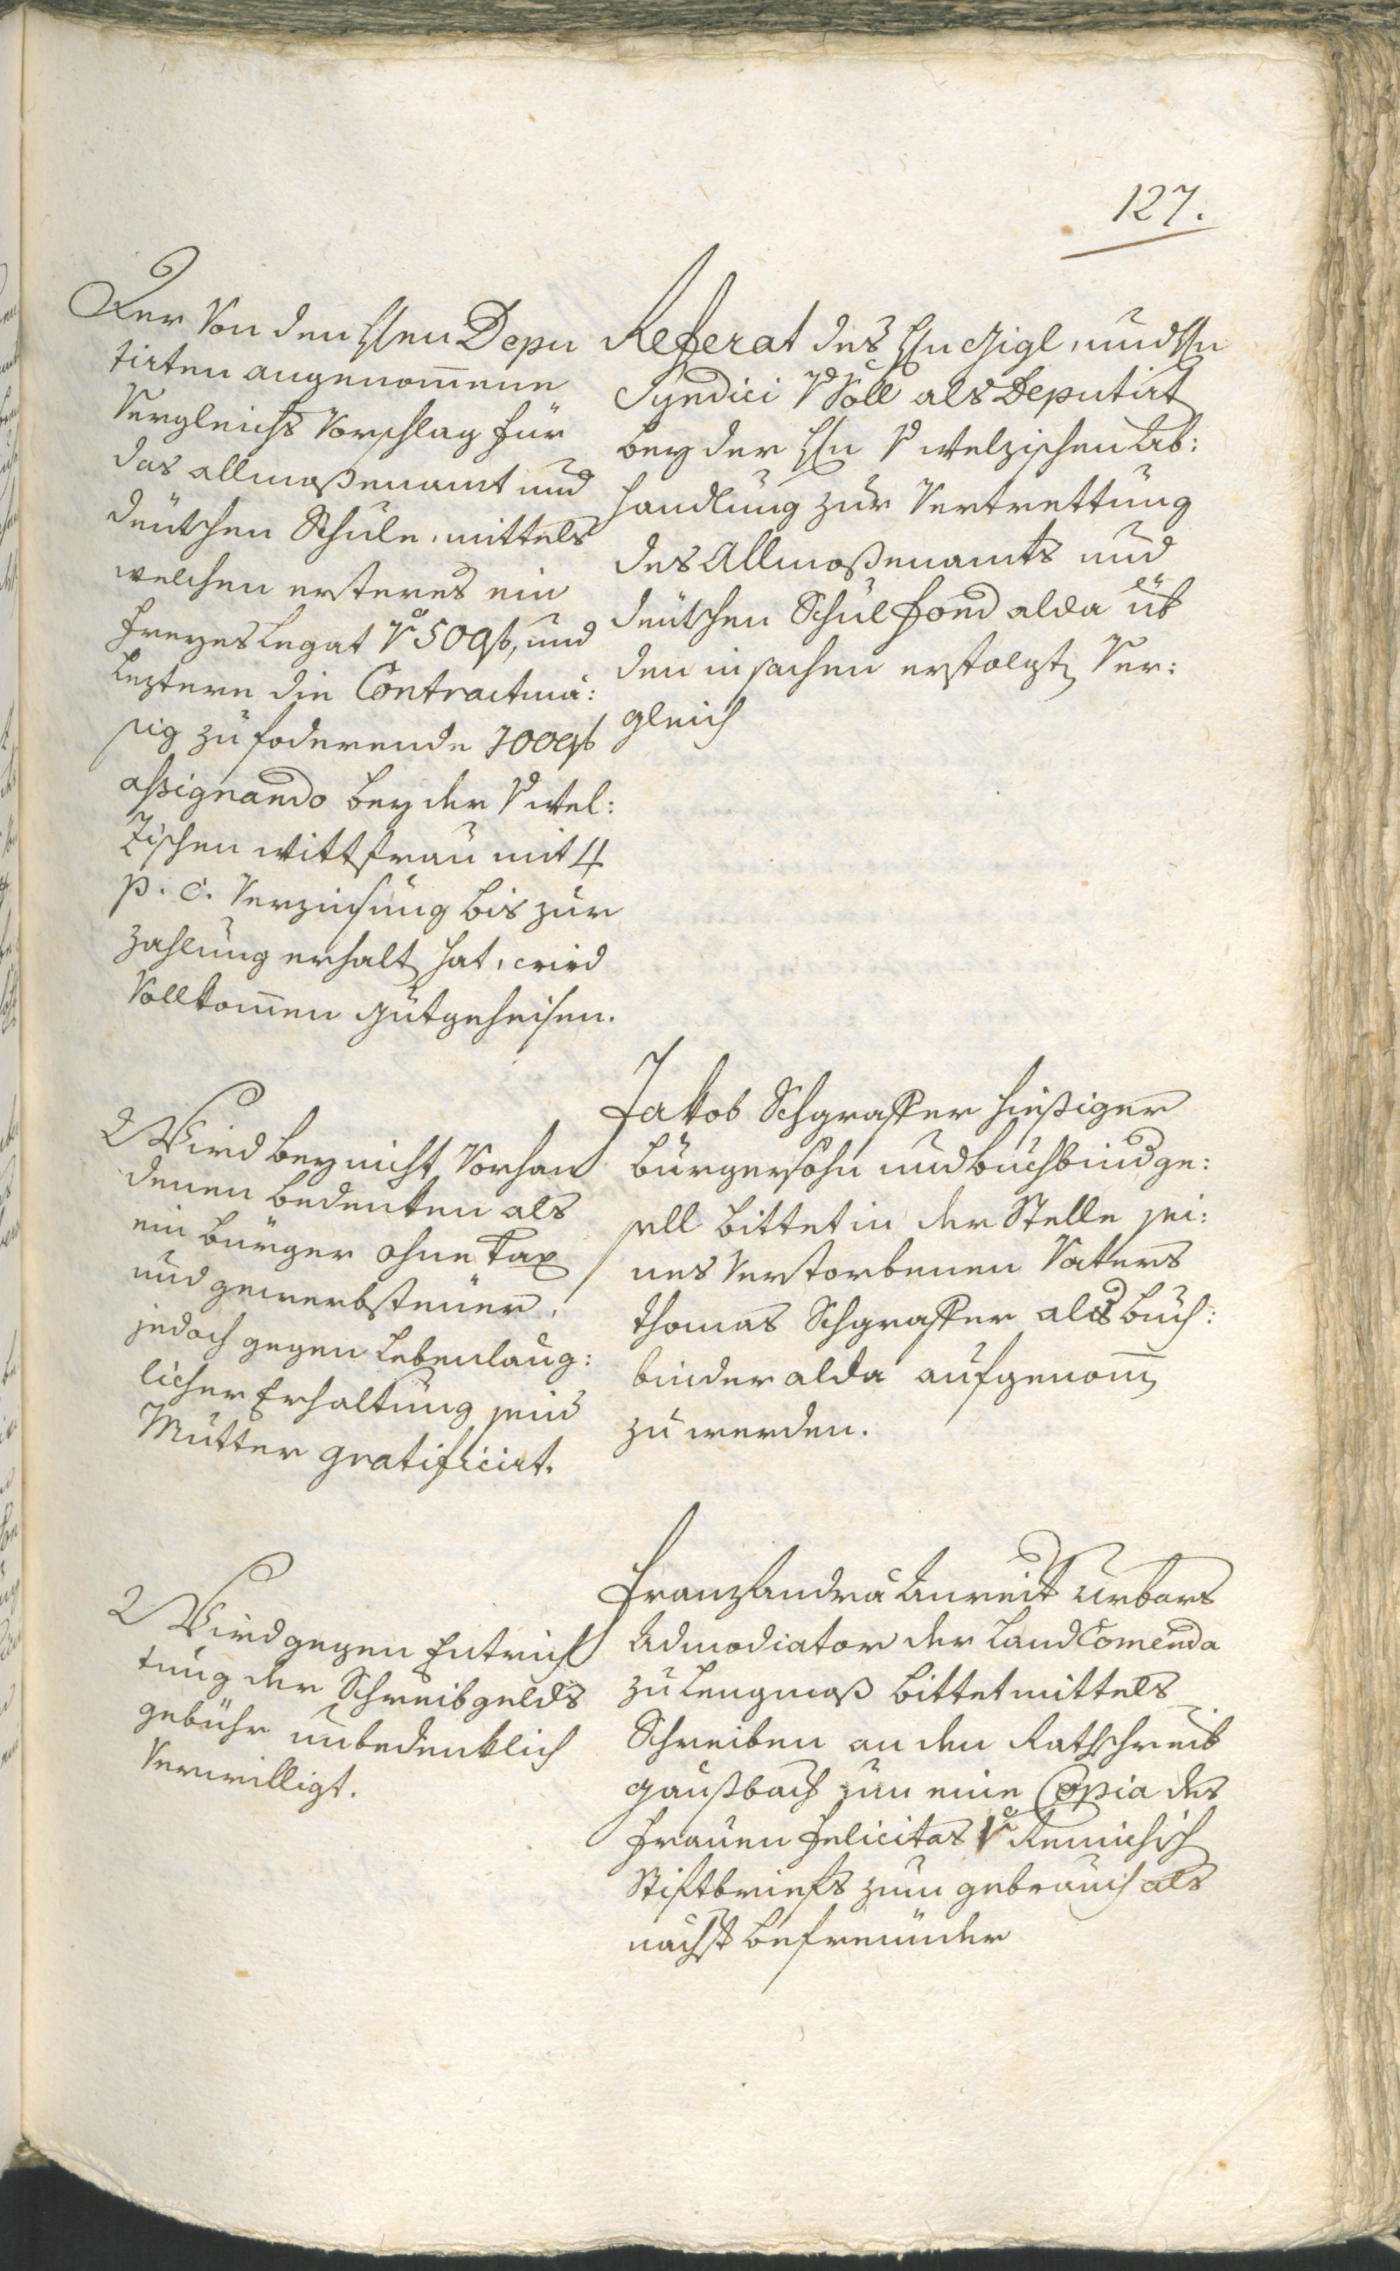 127.
Referat des Hn Gigl, und Hn
Syndici v Söll als Deputirt
bey der Hn v Welzischen Ab:
handlung zur Vertrettung
des Allmoßenamts und
deutschen Schulfond alda üb
den in sachen erfolgt Ver:
gleich
Der von den Hen Depu
tirten angenom̅ene
Vergleichs Vorschlag für
das allmoßenamt und
deutschen Schule, mittels
welchen ersteres ein
freyes Legat v 50 f, und
leztere die Contractmä:
sig zu foderende 700 f
assignando bey der v Wel:
zischen Wittfrau mit 4
p. c. Verzinsung bis zur
Zahlung erhalt hat, wird
Vollkom̅en gutgeheisen.
Jakob Schgraffer hießiger
bürgersohn und buchbindge:
sell bittet in der Stelle sei:
nes Verstorbenen Vaters
Thomas Schgraffer als buch:
binder alda aufgenom̅
zu werden.
Wird bey nicht Vorhan
denen bedenken als
ein bürger ohne Tax
und gewerbsteuer,
jedoch gegen Lebenlang:
licher Erhaltung sein
Mutter gratificirt.
Franz Andrä Anreit Urbars
Admodiator der Land Comenda
zu Lengmoß bittet mittels
Schreiben an den Rathschreib
Gaußbach um eine Copia des
Frauen Felicitas v Remichisch
Stiftbriefs zum gebrauch als
nächst befreunder
Wird gegen Entrich
tung der Schreibgelds
gebühr unbedenklich
Verwilligt.